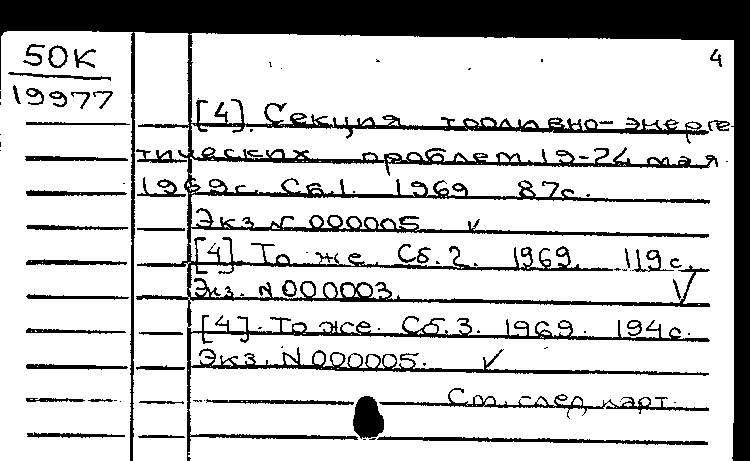 4
50К
19977
[4]. Секция топливно-энерге
тических проблем. 19-24 мая
1969г. Сб.1. 1969 87с.
Экз N 000005 ✓
[4]. То же. Сб.2. 1969. 119с.
Экз. N 000003. ✓
[4]. То же. Сб.3. 1969. 194с.
Экз. N 000005. ✓
См. след. карт.